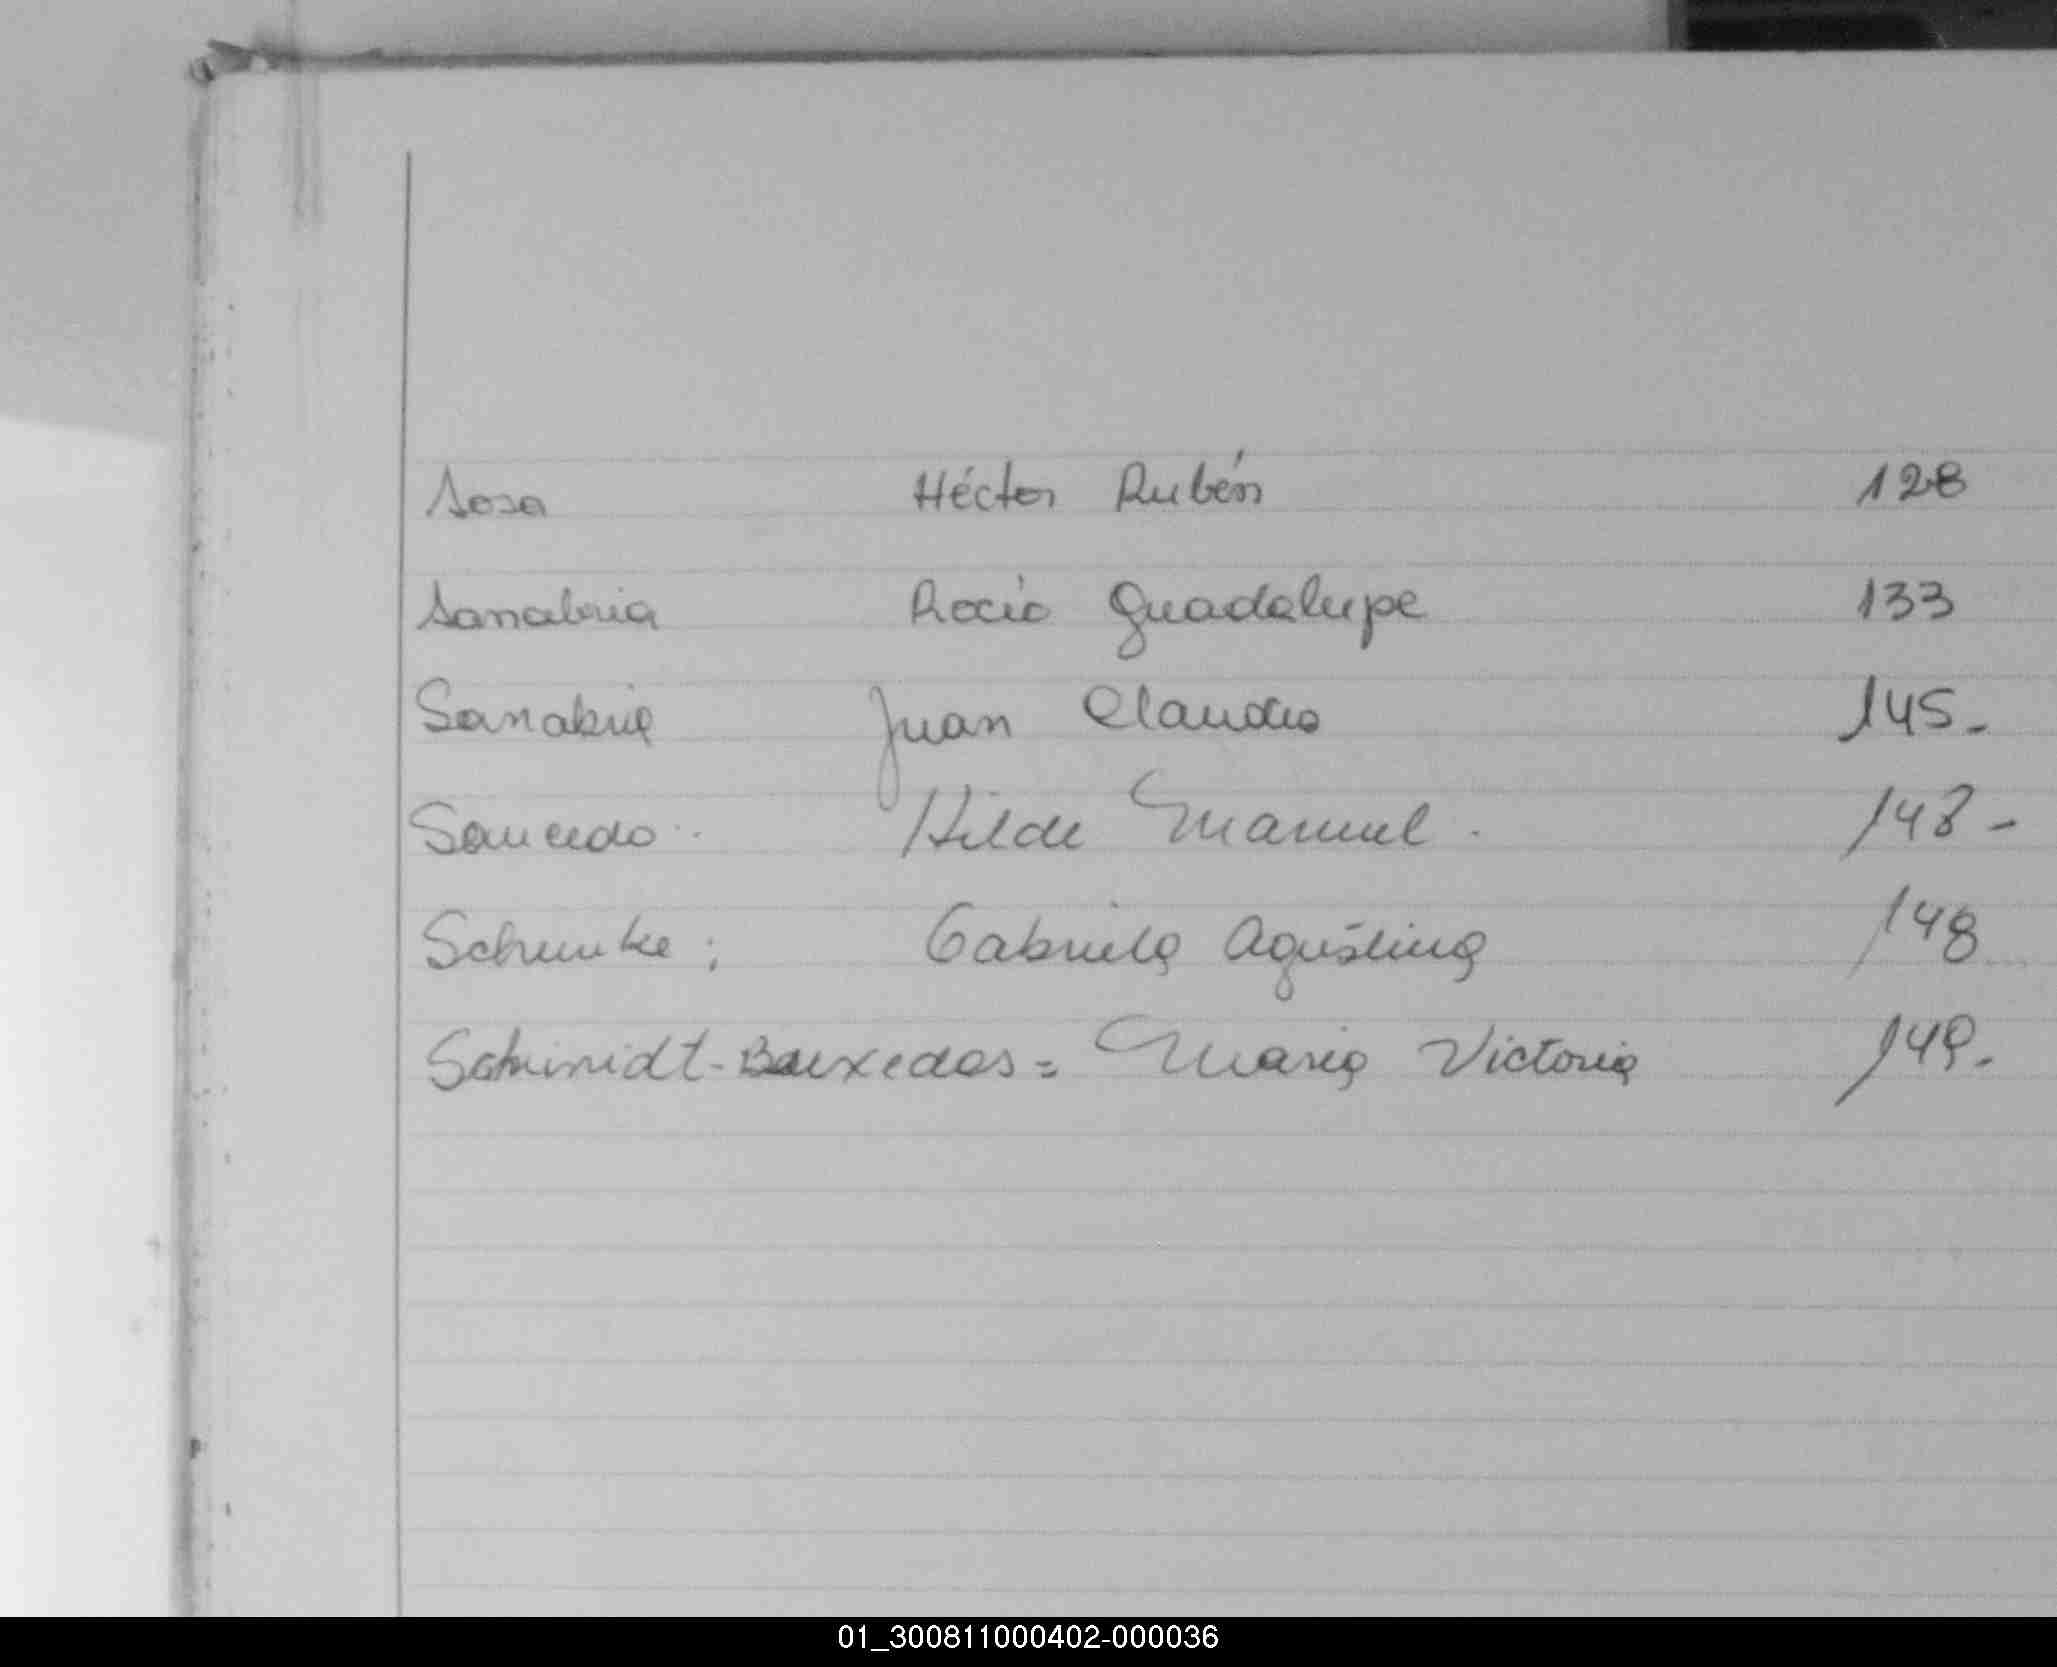 Sosa Héctor Rubén 128
Sanabria Rocío Guadalupe 133
Sanabria Juan Claudio 145-
Saucedo Hilde Manuel. 148-
Schunke; Gabriela Agustina 148
Schimidt-Bauxedas= Maria Victoria 149-
01_300811000402-000036